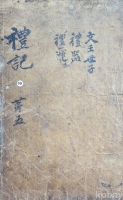 文王世子
禮運
禮器
禮記
苐五